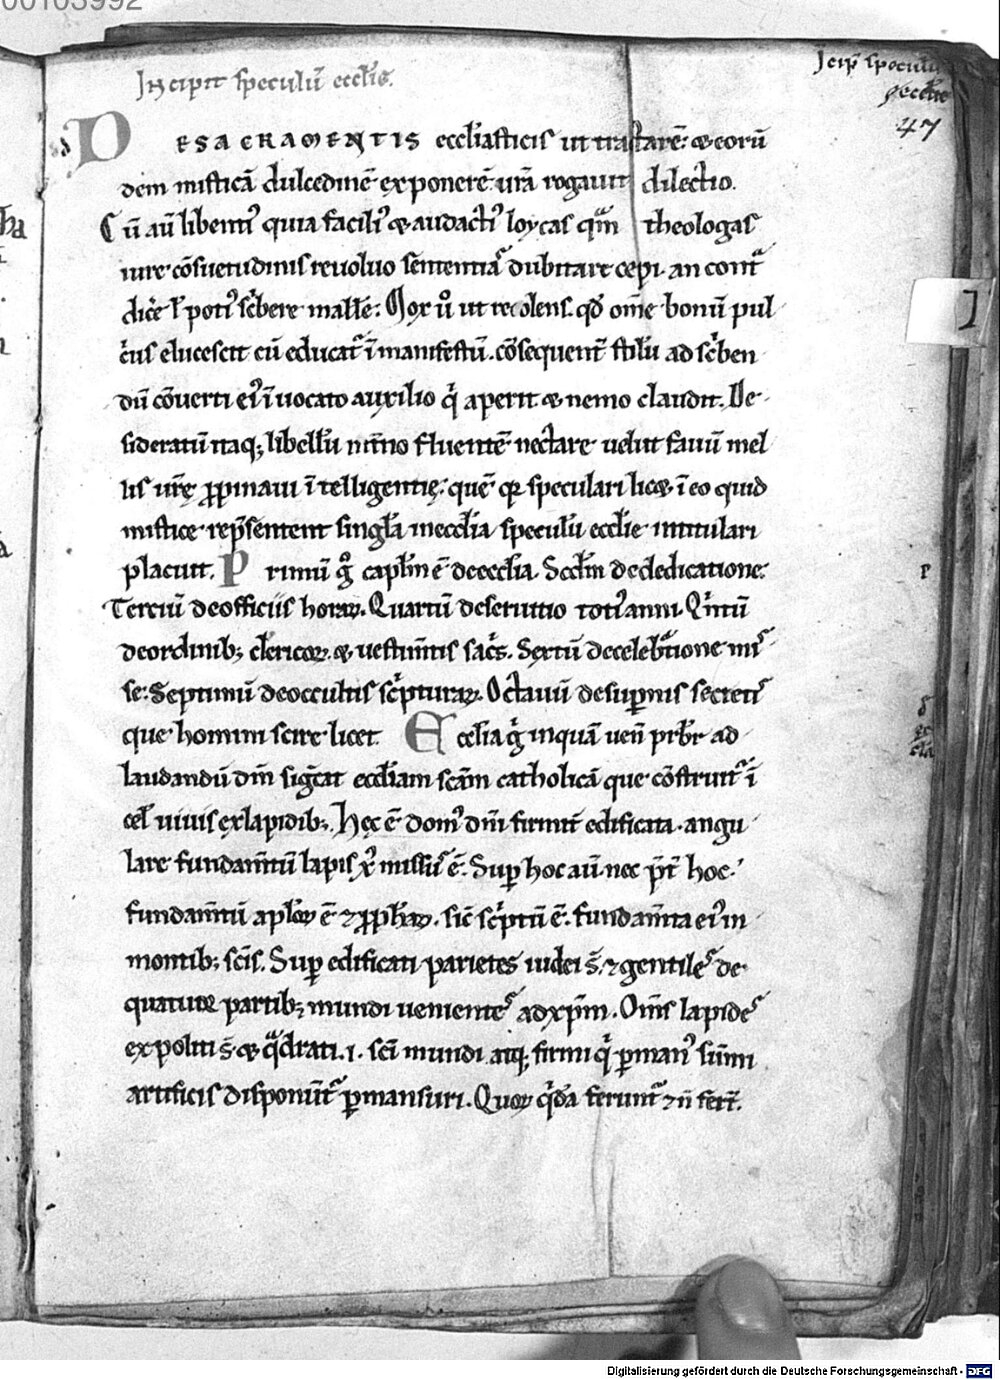 00103992
Incipit speculū eccl̄ie.
Icip̄ speculū
eccl̄ie
47
DE SACRAMENTIS eccl̄iasticis ut tractarē: & eorū
dem misticā dulcedinē exponerē ur̄a rogauit dilectio.
Cū aū libenti᾽ quia facili᾽ & audacti᾽ loycas qᵃm theologas
iure cōsuetudinis reuoluo sententias dubitare cepi. an contᵃ
dic̄e ł poti᾽ sc̄bere malłe: Mox ū ut recolens. qd̄ om̄e bonū pul
c̄us elucescit cū educat᾽ ī manifestū. cōsequent̄ stilū ad sc̄ben
dū cōuerti ei᾽ īuocato auxilio qͥ aperit & nemo claudit. De
sideratū itaq; libellū nim̄o fluentē nectare uelut fauū mel
lis ur̄ę ꝓpinaui ītelligentię: quē qꝛ speculari licet ī eo quid
mistice rep̄sentent singl̄a in eccl̄ia speculū eccl̄ie intitulari
placuit. Primū gͦ capl̄m ē de eccl̄ia. Scd̄m de dedicatione.
Terciū de officiis horaꝝ. Quartū de seruitio toti᾽ anni. Qͥntū
de ordinib; clericoꝝ. & uestim̄tis sac̄s. Sextū de celebᵃtione mis
se. Septimū de occultis sc̄pturaꝝ. Octauū de sup̄nis secretis
que homini scire licet. Eccl̄ia gͥ inquā ueń pr̄br ad
laudandū dm̄ sigͣcat eccl̄iam scām catholicā que cōstruit᾽ ī
cel̄ uiuis ex lapidib;. Hęc ē dom᾽ dn̄i firmit̄ edificata. angu
lare fundam̄tū lapis xp̄c missus ē. Sup̄ hoc aū. nec p̄t̄ hoc.
fundam̄tū apl̄oꝝ ē ⁊ ꝓph̄aꝝ. sic̄ sc̄ptū ē. fundam̄ta ei᾽ in
montib; scīs. Sup̄ edificati parietes iudei s̄. ⁊ gentiles de
quatuor partib; mundi uenientes ad xp̄m. Om̄s lapides
expoliti s̄. & qᵃdrati. i. scī mundi atq; firmi qͥ p̄man᾽ sūmi
artificis disponūt᾽ p̄mansuri. Quoꝝ qͥdā ferunt᾽ ⁊ n̄ fer̄t.
P
d᾽
ec
cl̄a
Digitalisierung gefördert durch die Deutsche Forschungsgemeinschaft - DFG